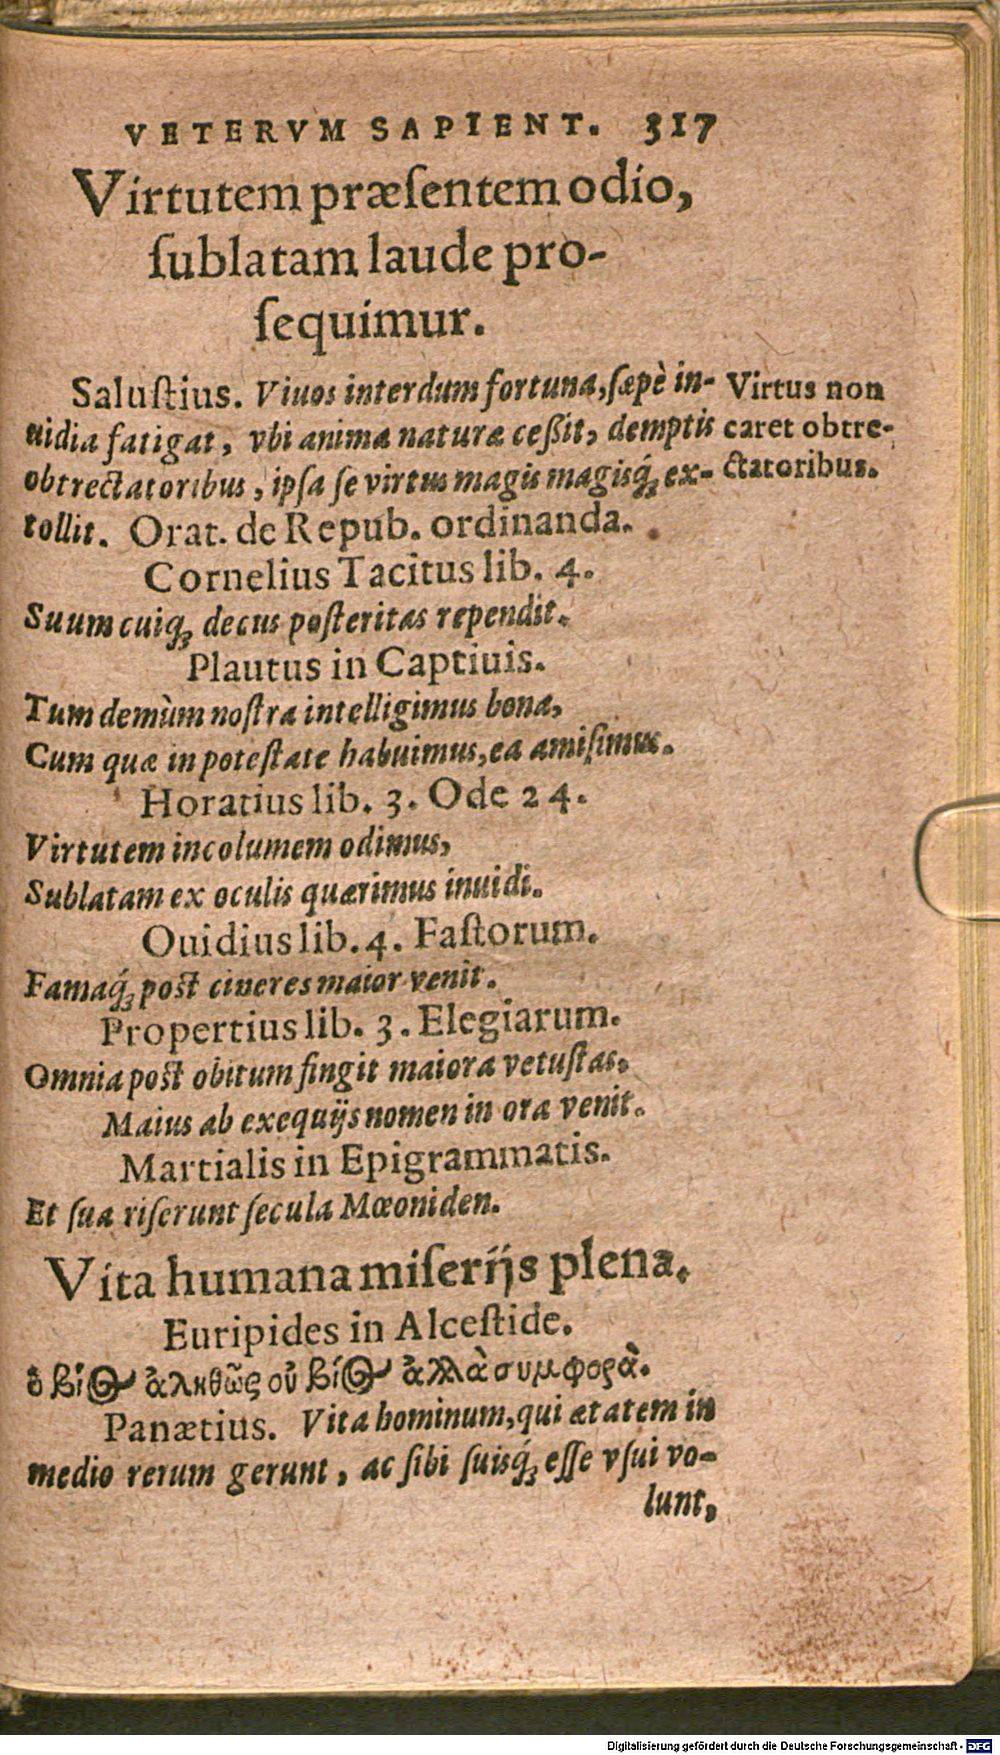 VETERVM SAPIENT. 317
Virtutem præſentem odio,
ſublatam laude pro-
ſequimur.
Saluſtius. Viuos interdum fortuna, ſæpè in-
uidia fatigat, vbi anima naturæ ceßit, demptis
obtrectatoribus, ipſa ſe virtus magis magisq́ꝫ ex-
tollit. Orat. de Repub. ordinanda.
Virtus non
caret obtre-
ctatoribus.
Cornelius Tacitus lib. 4.
Suum cuiqꝫ decus poſteritas rependit.
Plautus in Captiuis.
Tum demùm noſtra intelligimus bona,
Cum quæ in poteſtate habuimus, ea amiſimus.
Horatius lib. 3. Ode 24.
Virtutem incolumem odimus,
Sublatam ex oculis quærimus inuidi.
Ouidius lib. 4. Faſtorum.
Famaq́ꝫ poſt cineres maior venit.
Propertius lib. 3. Elegiarum.
Omnia poſt obitum fingit maiora vetuſtas.
Maius ab exequijs nomen in ora venit.
Martialis in Epigrammatis.
Et ſua riſerunt ſecula Mœoniden.
Vita humana miſerijs plena.
Euripides in Alceſtide.
ὁ βίος ἀληθῶς οὐ βίος ἀλλὰ συμφορὰ.
Panætius. Vita hominum, qui ætatem in
medio rerum gerunt, ac ſibi ſuisq́ꝫ eſſe vſui vo-
lunt,
Digitalisierung gefördert durch die Deutsche Forschungsgemeinschaft - DFG